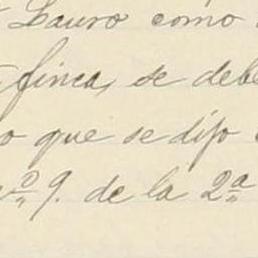 Lauro como
finca, se debe
o que se dijo
nº 9. de la 2ª